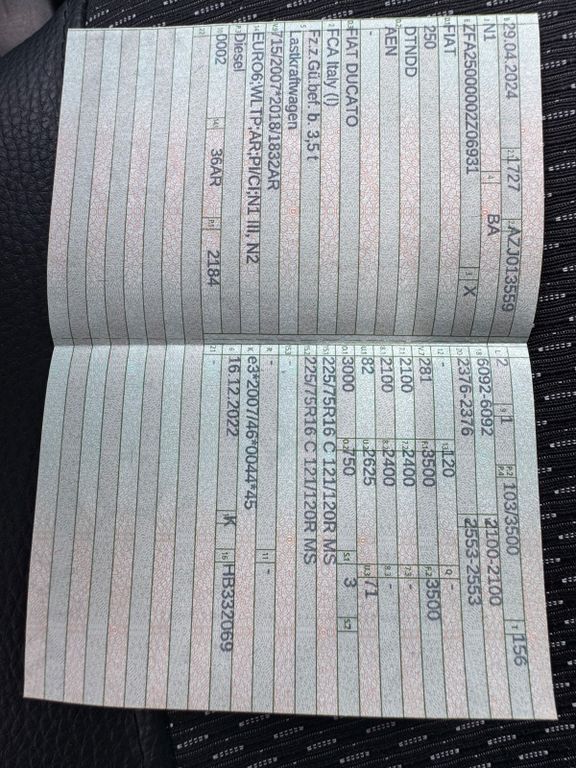 29.04.2024 1727 AZJ013559
N1 BA
ZFA25000002Z06931 X
FIAT
250
DTNDD
AEN
-
FIAT DUCATO
FCA Italy (I)
Fz.z.Gü.bef. b. 3,5 t
Lastkraftwagen
715/2007*2018/1832AR
EURO6;WLTP;AR;PI/CI;N1 III, N2
Diesel
0002 36AR 2184
2 1 103/3500 156
6092-6092 2100-2100
2376-2376 2553-2553
- 120 -
281 3500 3500
2100 2400 -
2100 2400 -
82 2625 71
3000 750 3
225/75R16 C 121/120R MS
225/75R16 C 121/120R MS
-
- -
e3*2007/46*0044*45
16.12.2022 K HB332069
-